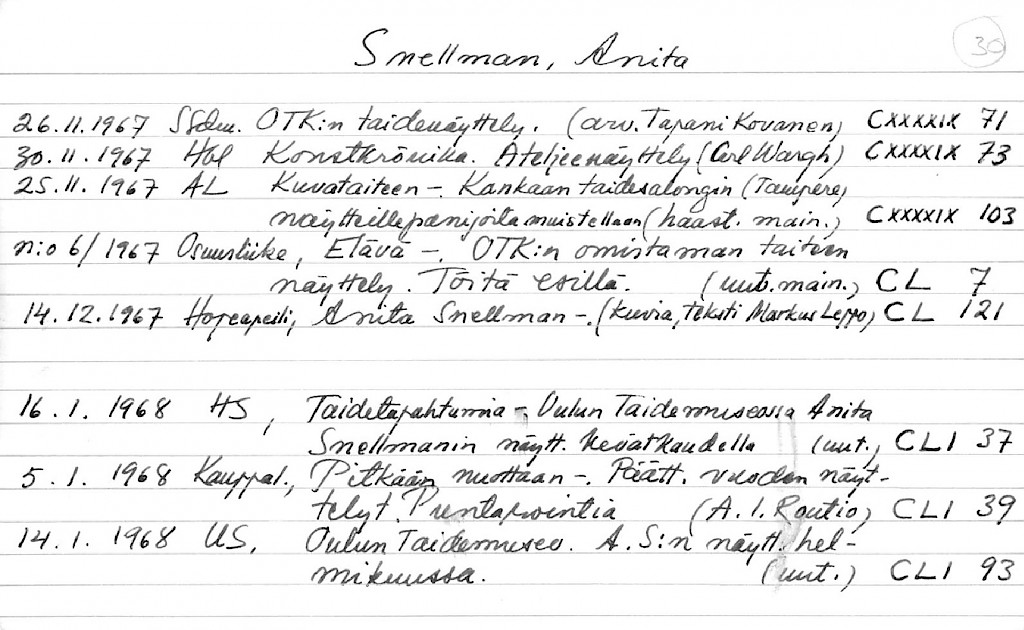 30
Snellman, Anita
26.11.1967 SSdm. OTK:n taidenäyttely. (arv. Tapani Kovanen) CXXXXIX 71
30.11.1967 Hbl Konstkrönika. Ateljeenäyttely (Carl Wargh) CXXXXIX 73
25.11.1967 AL Kuvataiteen -. Kankaan taidesalongin (Tampere)
näytteillepanijoita muistellaan (haast. main.) CXXXXIX 103
n:o 6/1967 Osuusliike, Elävä -. OTK:n omistaman taiteen
näyttely. Töitä esillä. (uut. main.) CL 7
14.12.1967 Hopeapeili, Anita Snellman -. (kuvia, teksti Markus Leppo) CL 121
16.1. 1968 HS, Taidetapahtumia -. Oulun Taidemuseossa Anita
Snellmanin näytt. kevätkaudella (uut.) CLI 37
5.1. 1968 Kauppal., Pitkään nuottaan -. Päätt. vuoden näyt-
telyt. Puntarointia (A.I. Routio) CLI 39
14.1. 1968 US. Oulun Taidemuseo. A.S:n näytt. hel-
mikuussa. (uut.) CLI 93